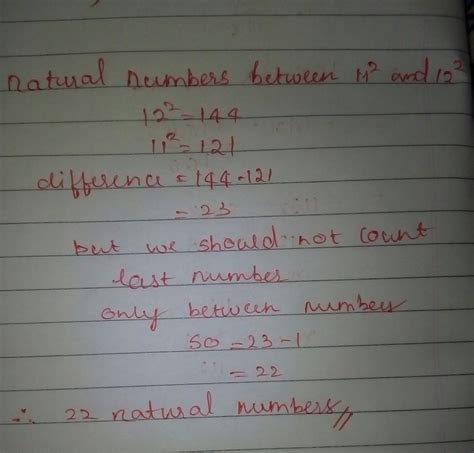 natural numbers between 11² and 12²
12² = 144
11² = 121
difference = 144 - 121
= 23
but we should not count
last number
only between number
so = 23 - 1
= 22
∴ 22 natural numbers //